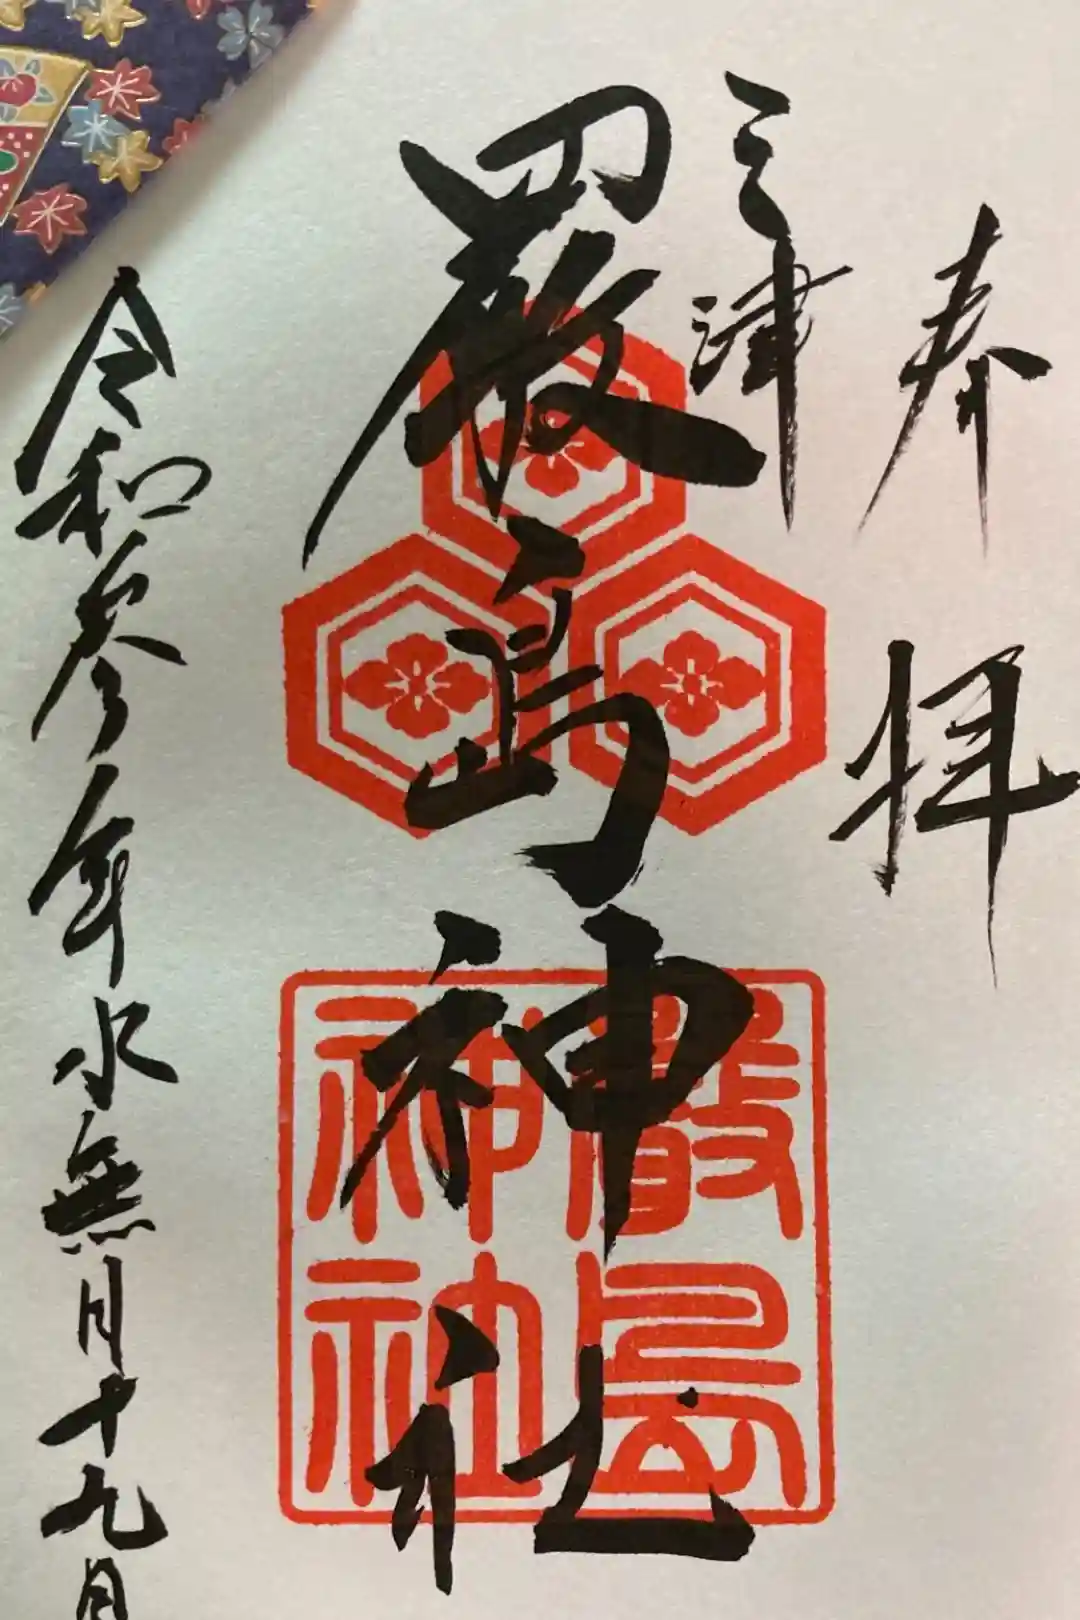 奉拝
三津
厳島神社
嚴島
神社
令和参年水無月十九日